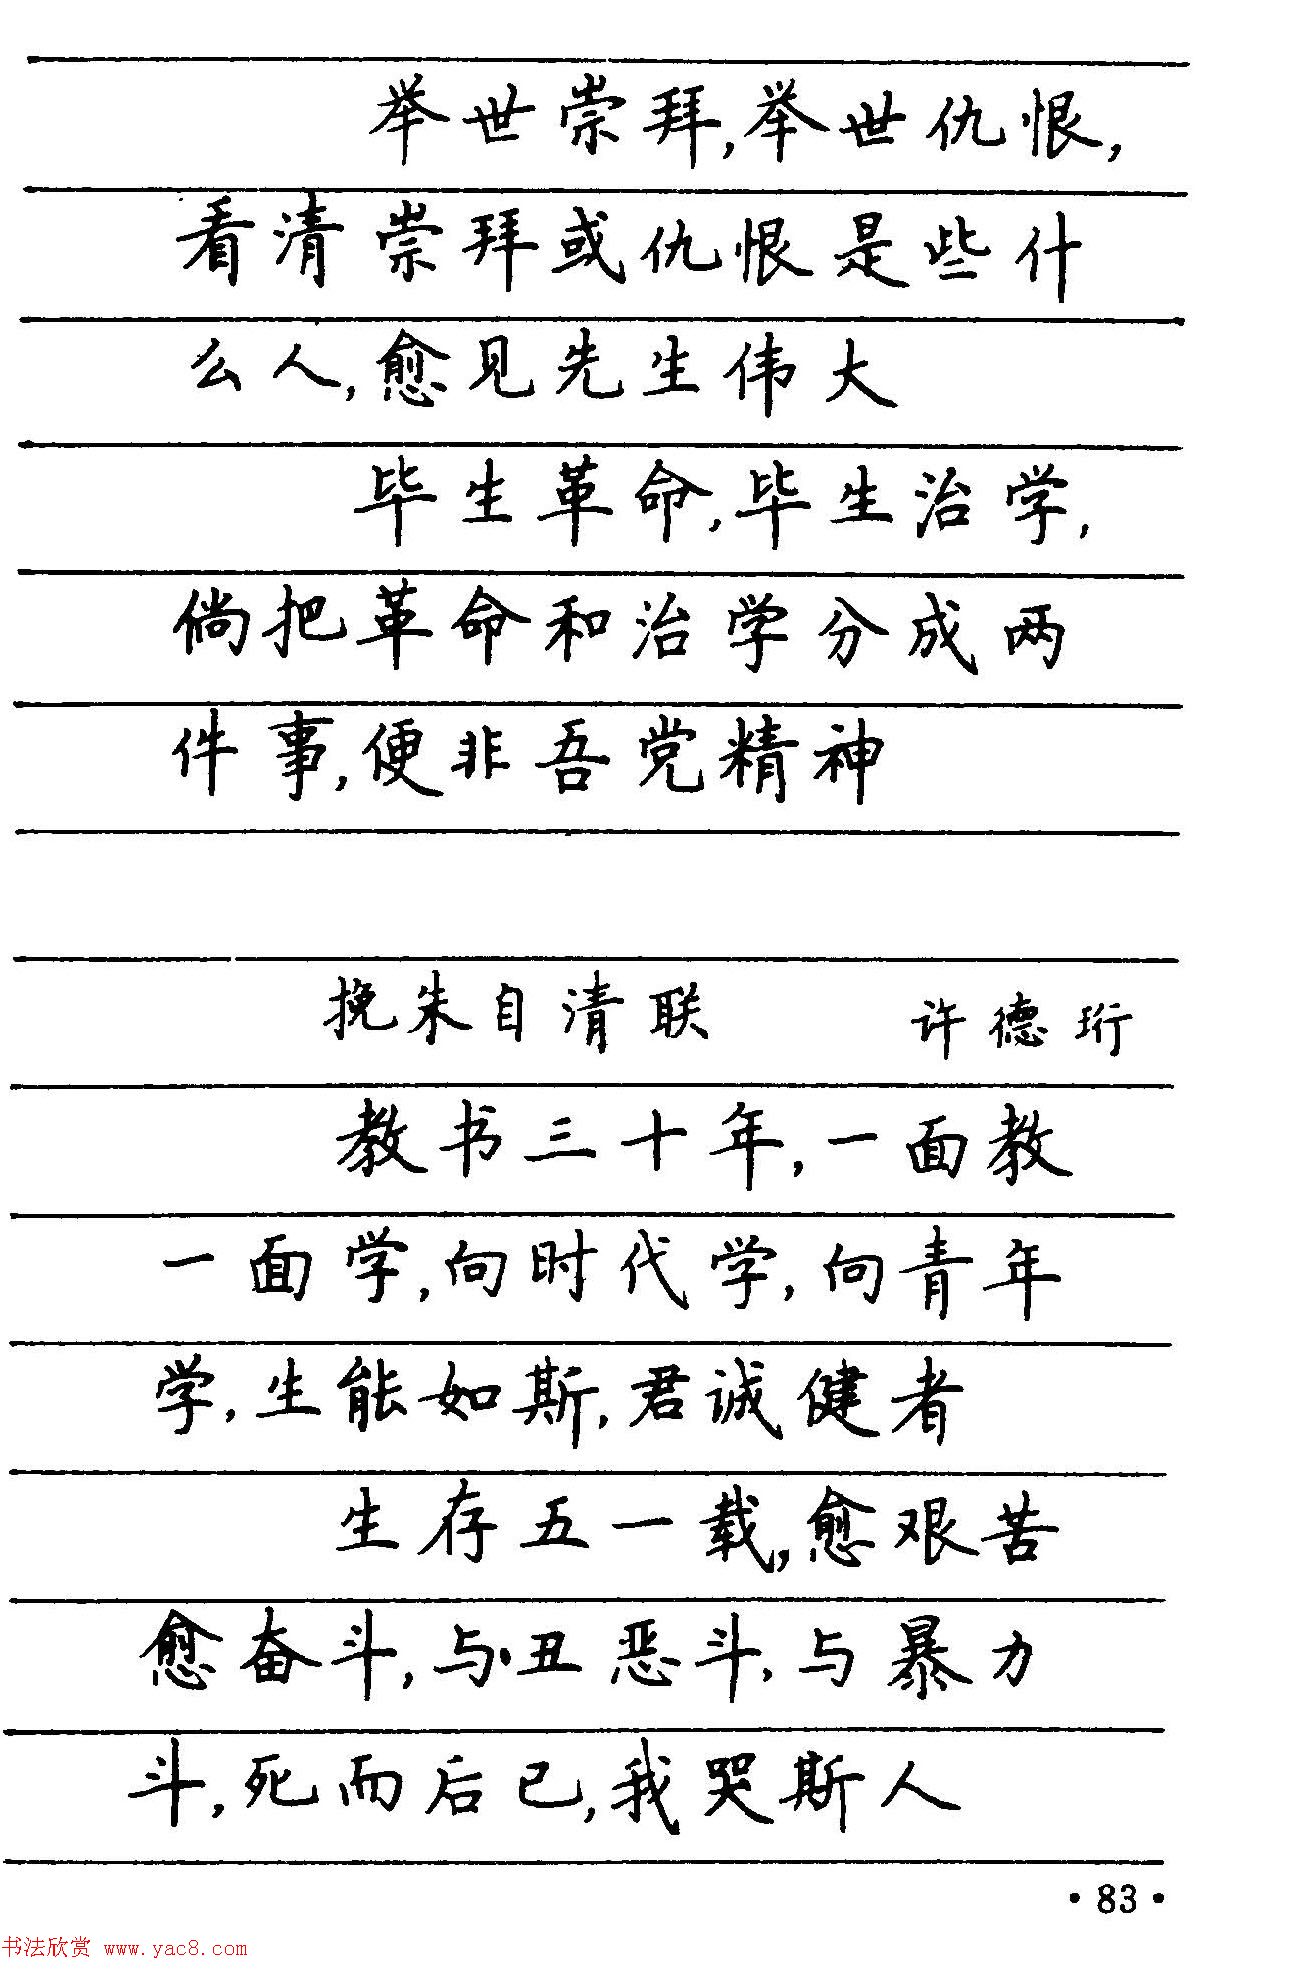 举世崇拜,举世仇恨,
看清崇拜或仇恨是些什
么人,愈见先生伟大
毕生革命,毕生治学,
倘把革命和治学分成两
件事,便非吾党精神
挽朱自清联 许德珩
教书三十年,一面教
一面学,向时代学,向青年
学,生能如斯,君诚健者
生存五一载,愈艰苦
愈奋斗,与丑恶斗,与暴力
斗,死而后已,我哭斯人
·83·
书法欣赏 www.yac8.com